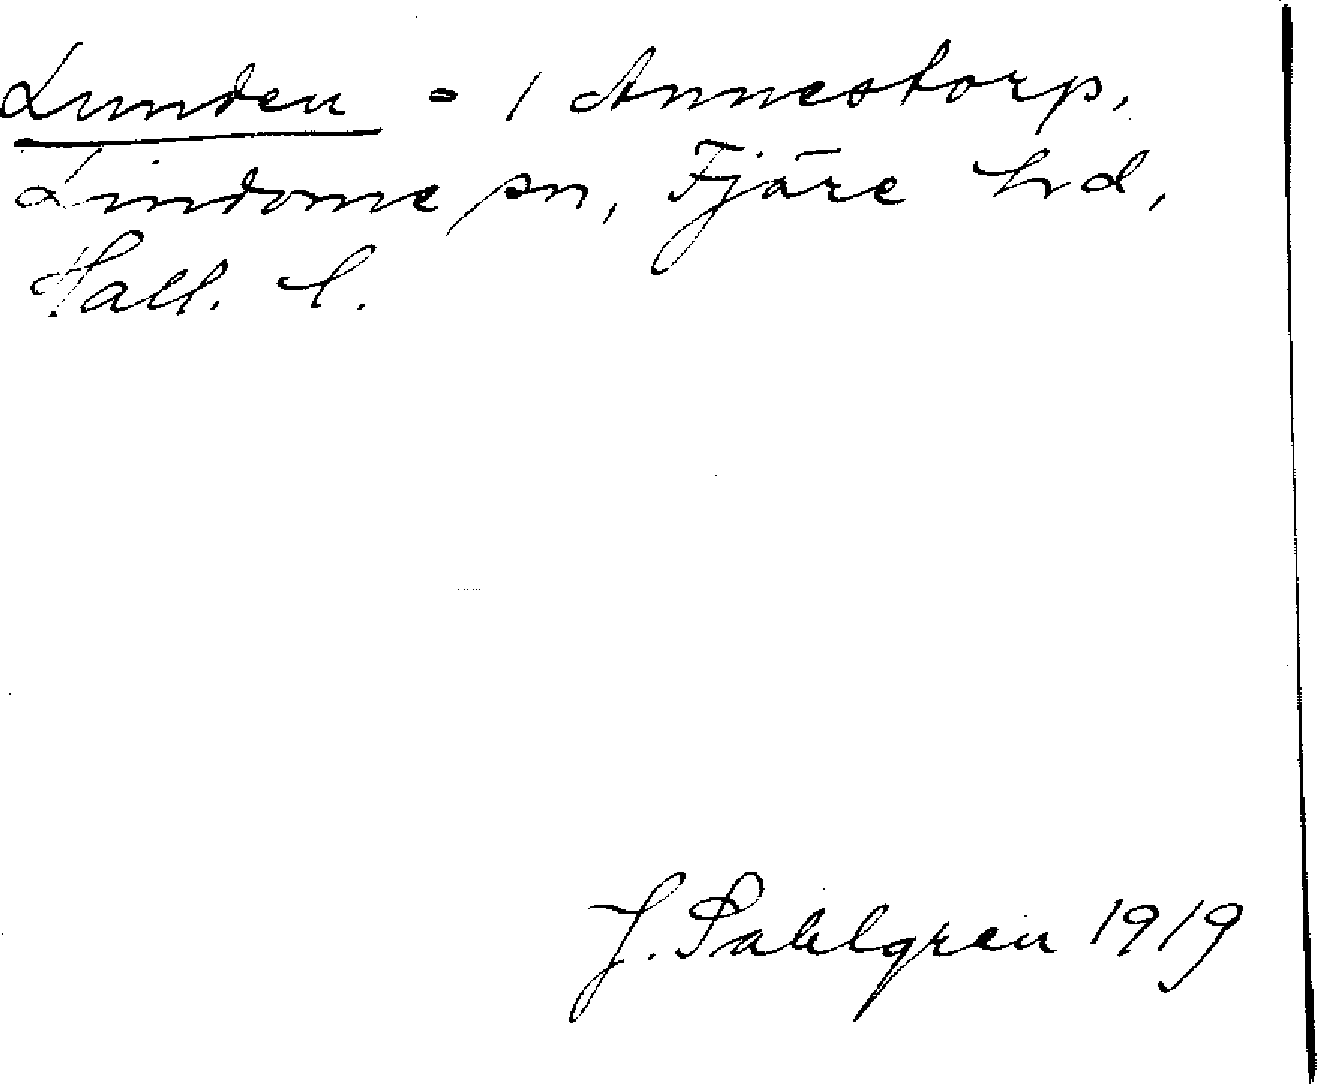 Lunden = 1 Annestorp,
Lindome sn, Fjäre hd,
Hall. l.
J. Sahlgren 1919